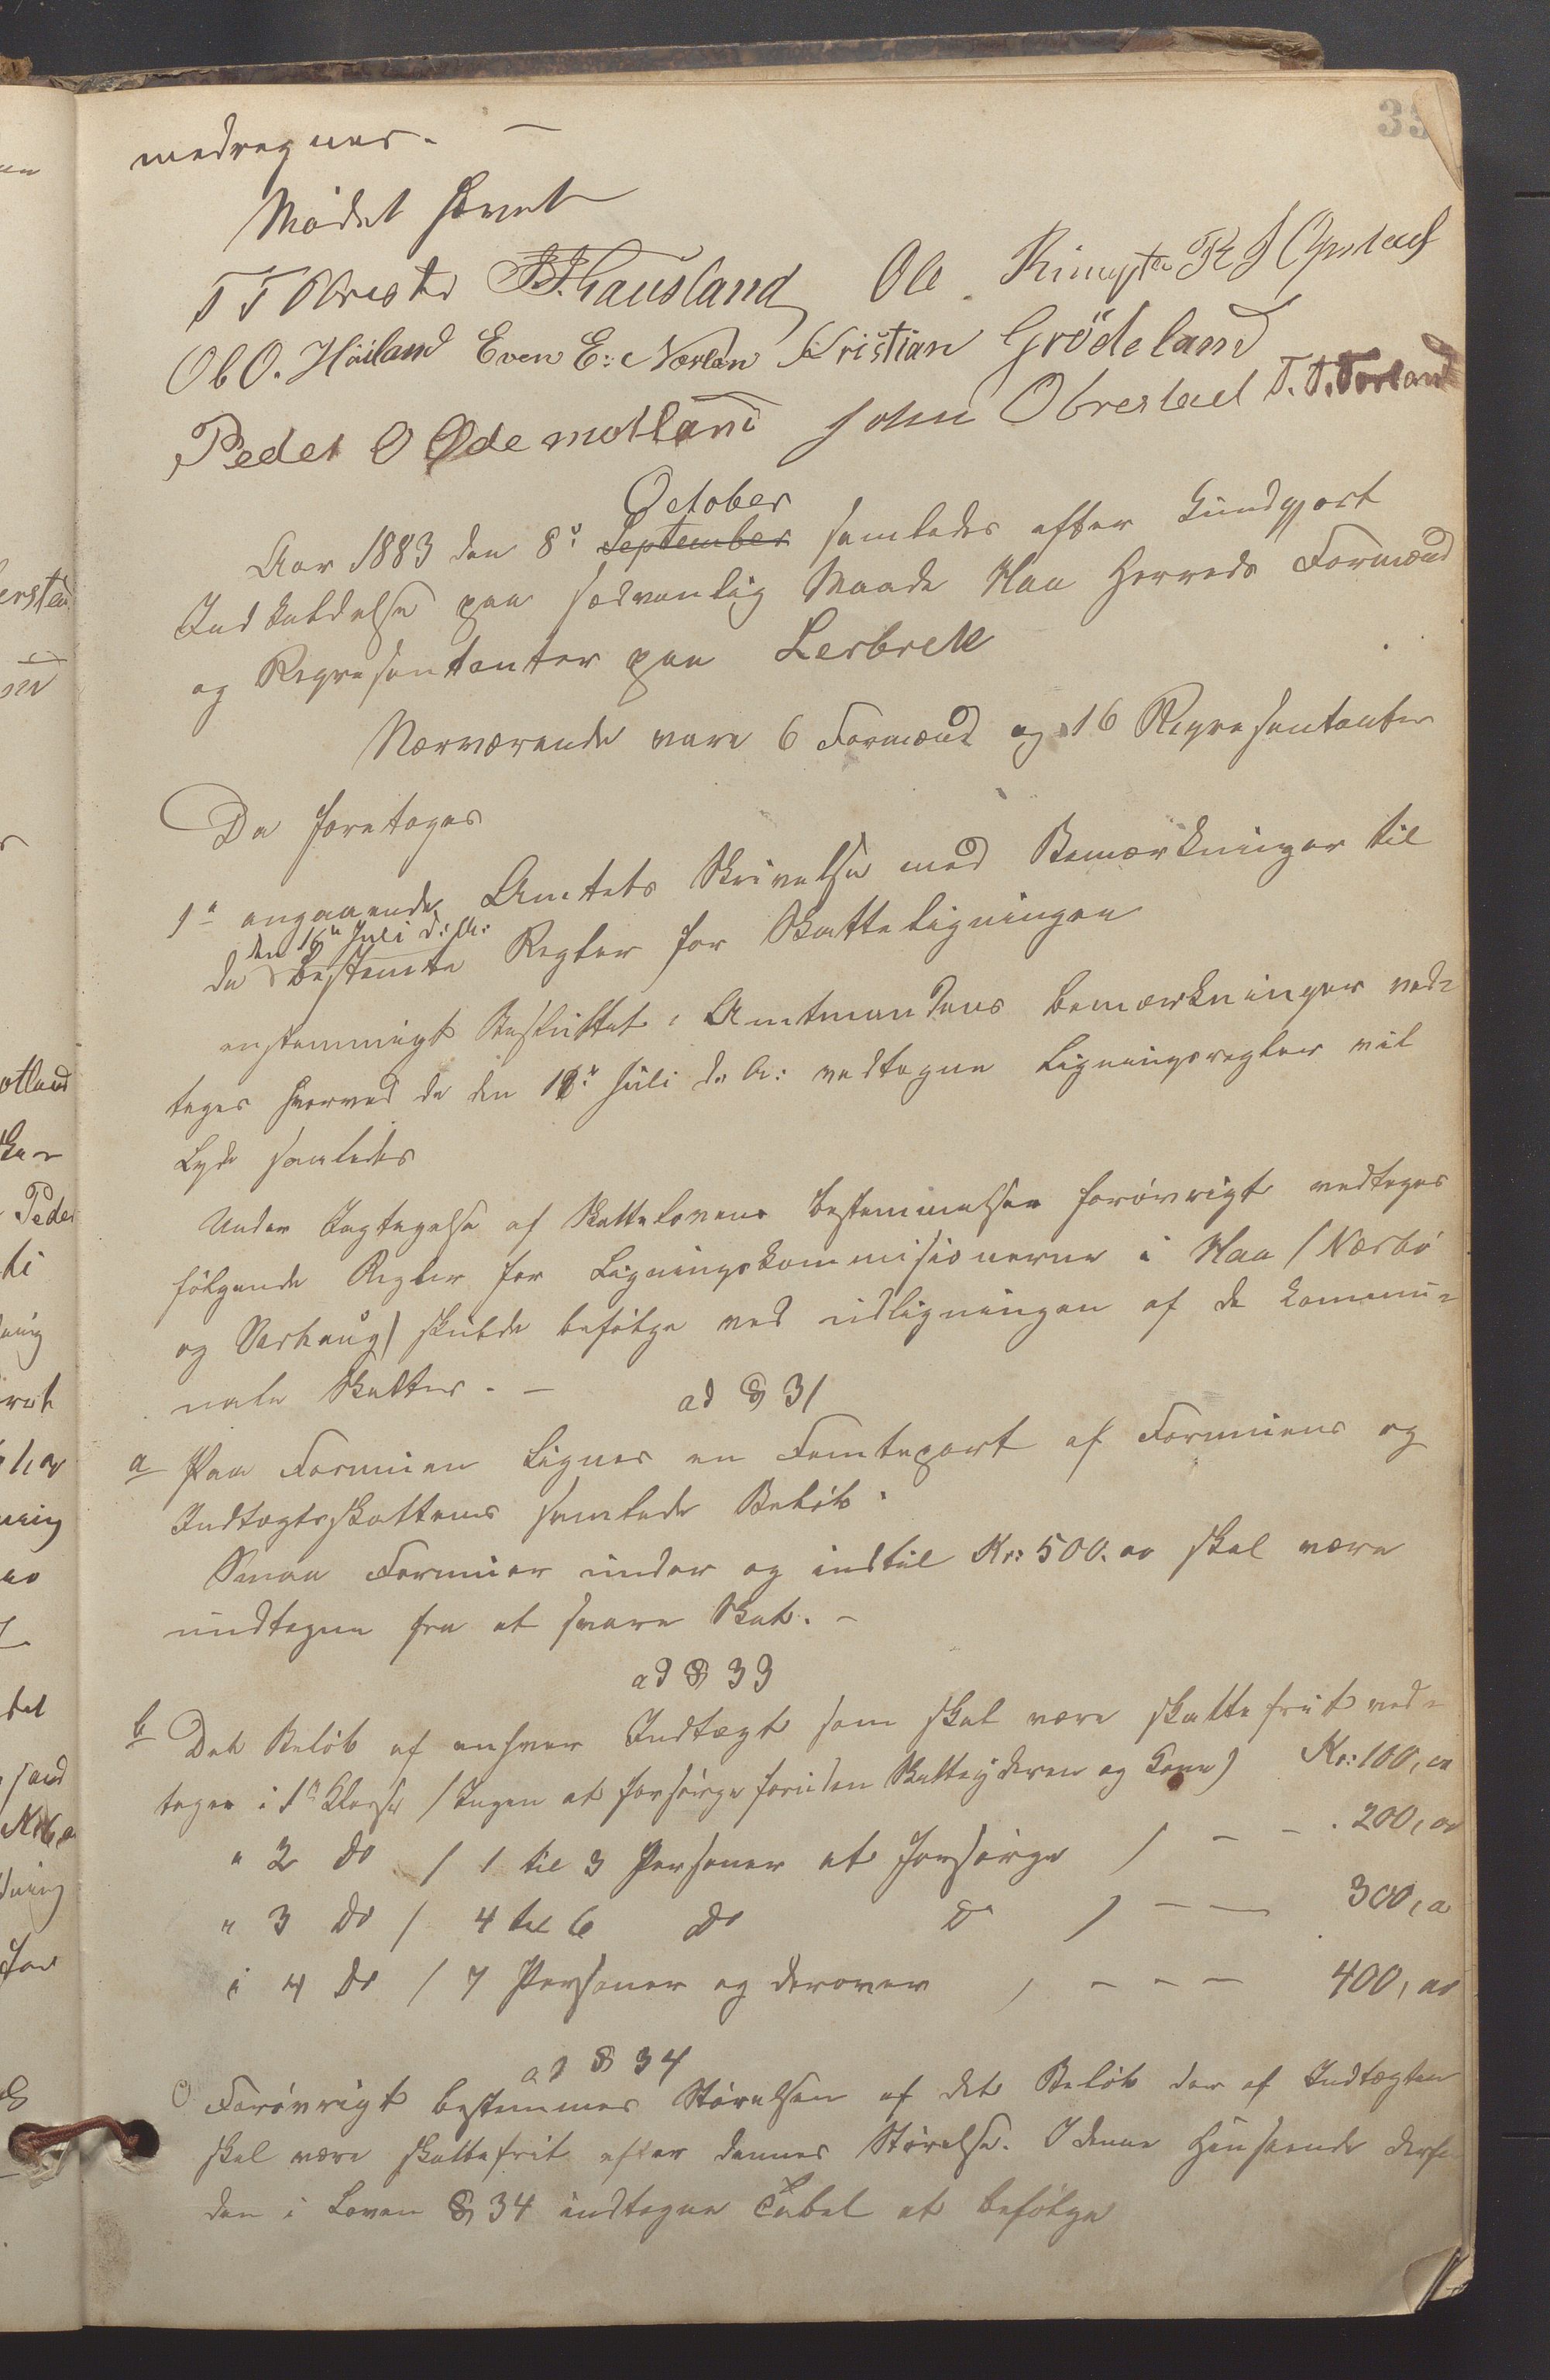 35
medregnes. —
Mødet hævet
T T Obrestad J J. Hausland Ole Ringsten R S Opstad
Ol O. Höiland Even E: Nærland Kristian Grödeland
Peder O Ødemotland John Obrestad T. T. Torland
October
Aar 1883 den 8de September samledes efter kundgjort
Indkaldelse paa sedvanlig Maade Haa Herreds Formænd
og Representanter paa Lerbrek
Nærværende vare 6 Formænd og 16 Representanter
Da foretages
1te angaaende Amtets Skrivelse med Bemærkninger til
den 16de Juli d: A:
de bestemte Regler for Skatteligningen
enstemmigt Besluttet: Amtmandens bemærkninger ved-
tages hvorved de den 18de Juli d. A: vedtagne Ligningsregler vil
Lyde saaledes
Under Iagtagelse af Skattelovens bestemmelser forøvrigt vedtages
følgende Regler for Ligningskommisionerne i Haa (Nærbø
og Varhaug) skulde befølge ved udligningen af de kommu-
nale Skatter. —
ad § 31
a Paa Formuen Lignes en Femtepart af Formues og
Indtægtsskattens samlede Beløb.
Smaa Formuer under og indtil Kr: 500.00 skal være
undtagne fra at svare Skat. —
ad § 33
b Det Beløb af enhver Indtægt som skal være skattefrit ved-
tages i 1ste Klasse (Ingen at forsørge foruden Skatteyderen og Kone) Kr: 100,00
" 2 do ( 1 til 3 Personer at forsørge ) — — . 200,00
" 3 do ( 4 til 6 do do ) — — 300,00
i 4 do ( 7 Personer og derover ) — — — 400,00
ad § 34
c Forøvrigt bestemmes Størelsen af det Beløb der af Indtægten
skal være skattefrit efter dennes Størelse. I denne Henseende
den i Loven § 34 indtagne Tabel at befølge